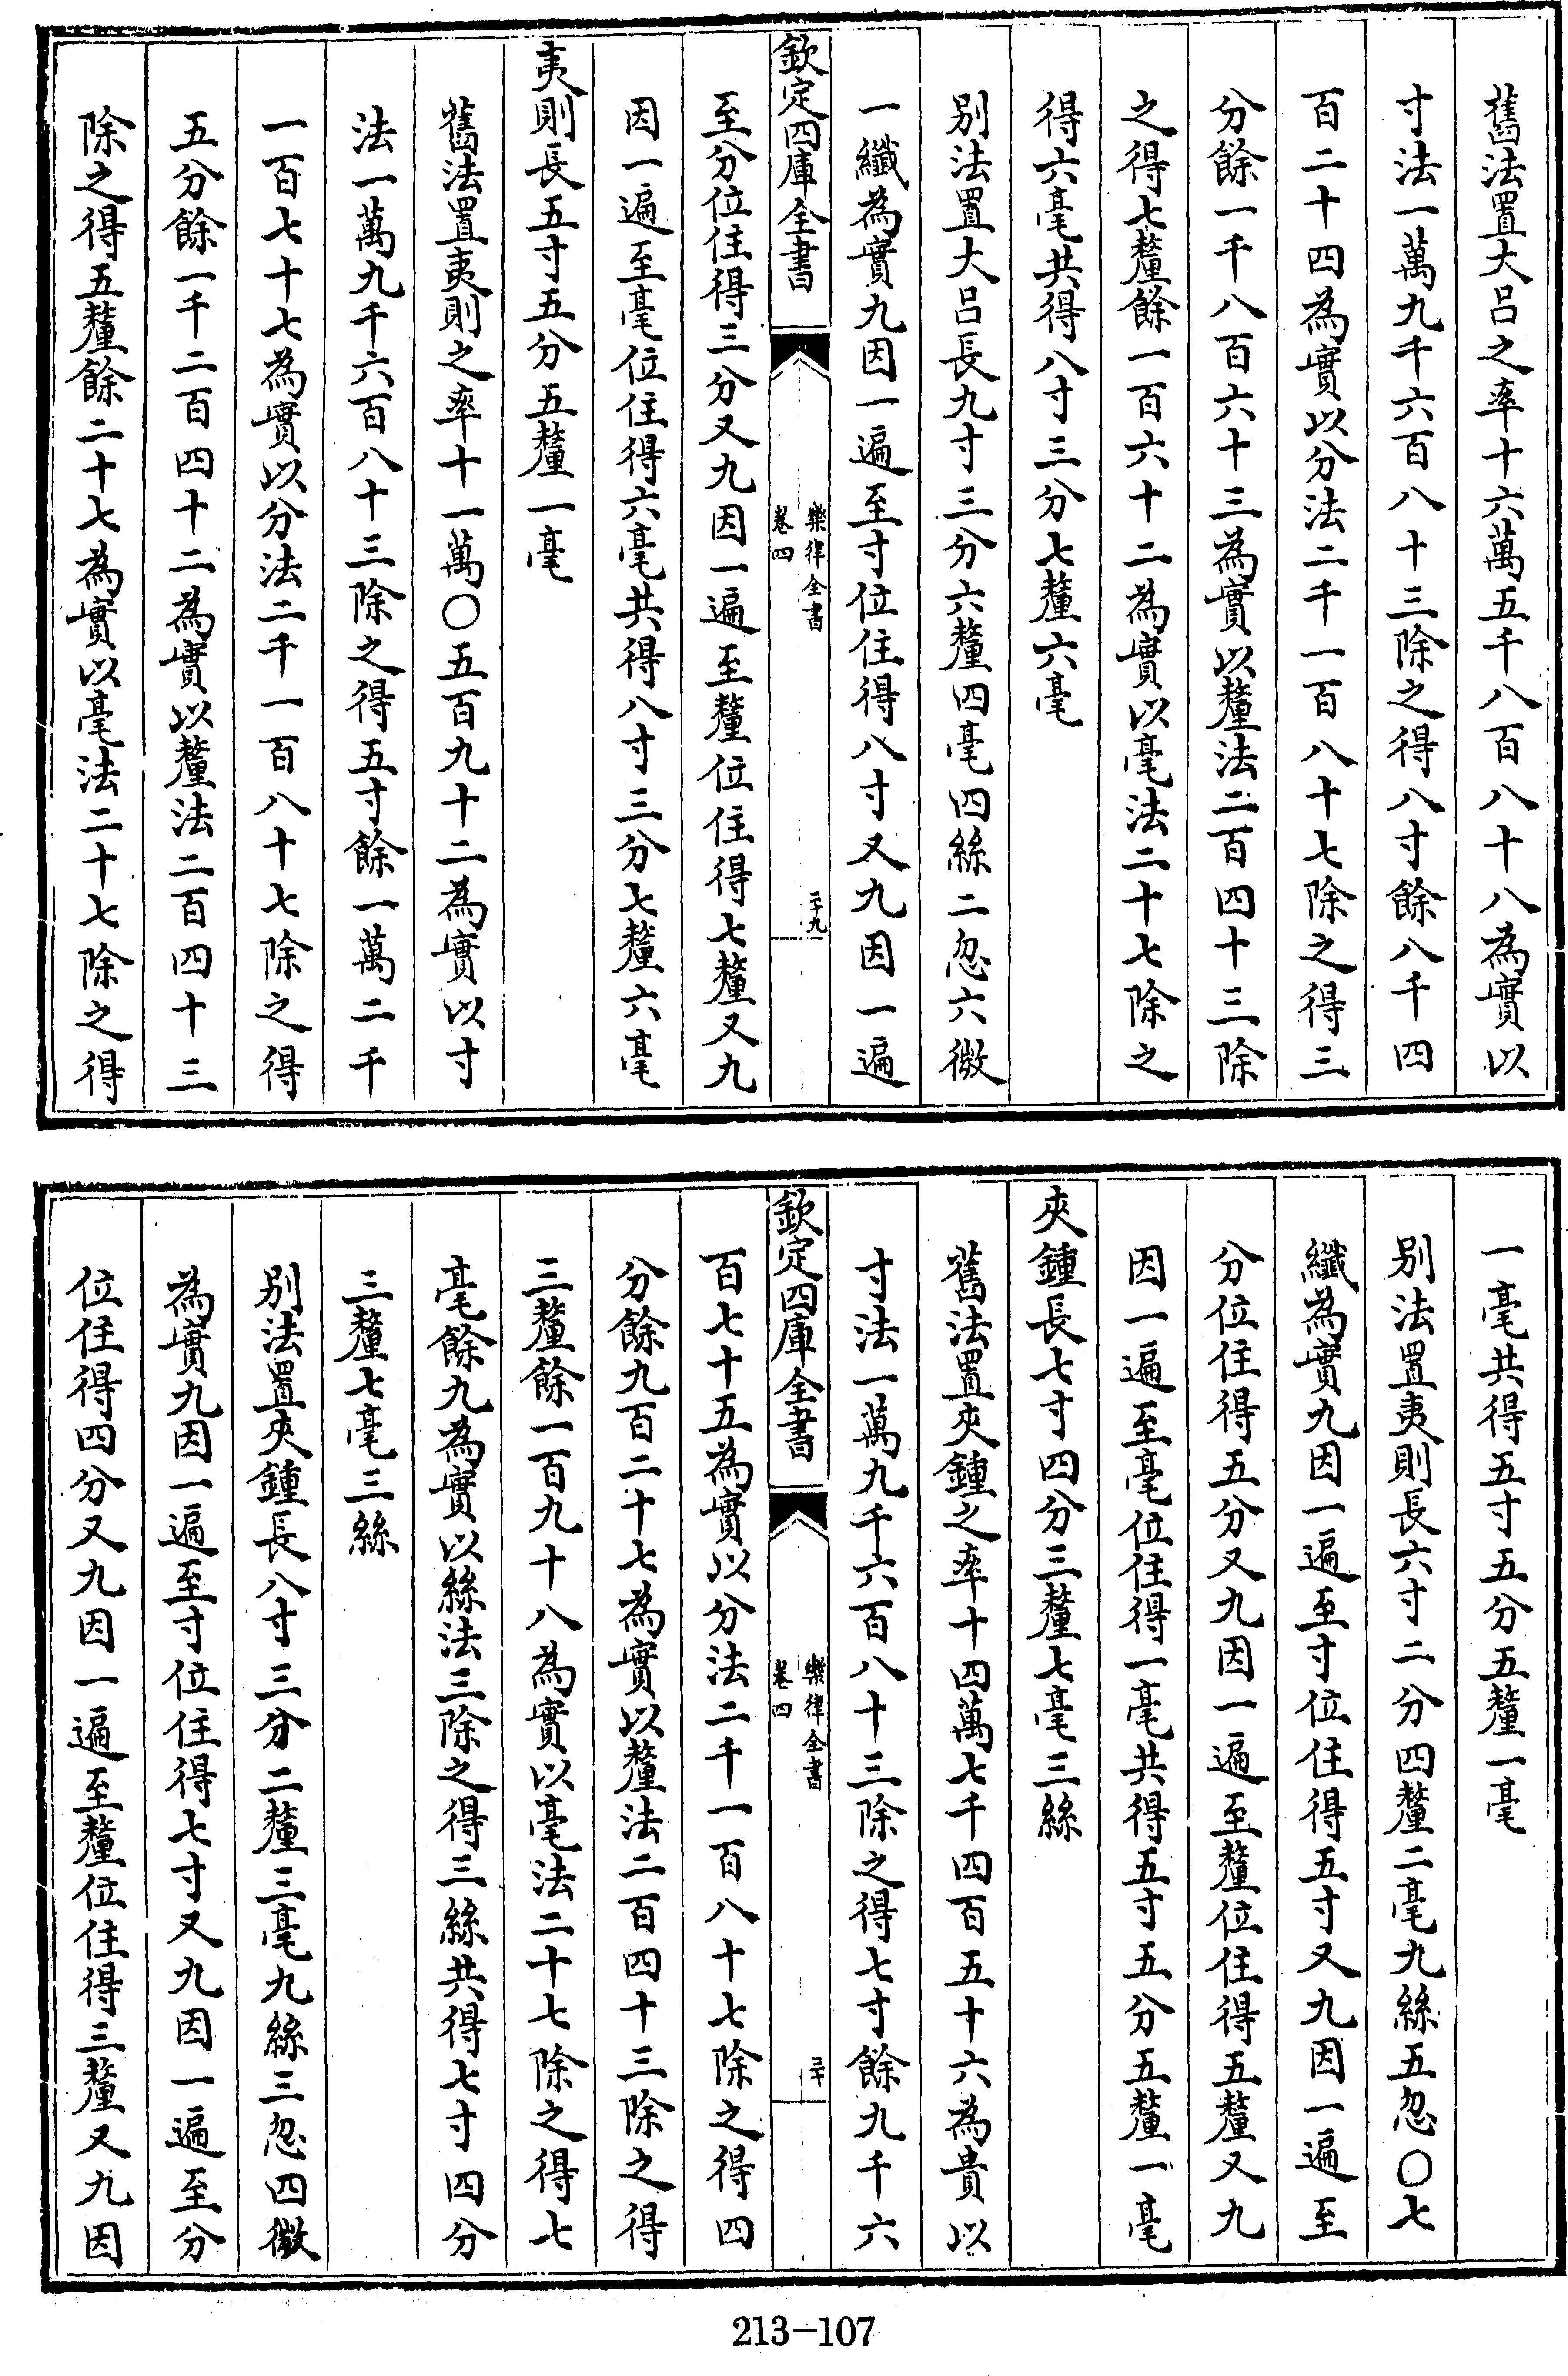 舊法置大呂之率十六萬五千八百八十八為實以
寸法一萬九千六百八十三除之得八寸餘八千四
百二十四為實以分法二千一百八十七除之得三
分餘一千八百六十三為實以釐法二百四十三除
之得七釐餘一百六十二為實以毫法二十七除之
得六毫共得八寸三分七釐六毫
别法置大呂長九寸三分六釐四毫四絲二忽六微
一纖為實九因一遍至寸位住得八寸又九因一遍
欽定四庫全書
樂律全書
卷四
二十九
至分位住得三分又九因一遍至釐位住得七釐又九
因一遍至毫位住得六毫共得八寸三分七釐六毫
夷則長五寸五分五釐一毫
舊法置夷則之率十一萬〇五百九十二為實以寸
法一萬九千六百八十三除之得五寸餘一萬二千
一百七十七為實以分法二千一百八十七除之得
五分餘一千二百四十二為實以釐法二百四十三
除之得五釐餘二十七為實以毫法二十七除之得
一毫共得五寸五分五釐一毫
别法置夷則長六寸二分四釐二毫九絲五忽〇七
纖為實九因一遍至寸位住得五寸又九因一遍至
分位住得五分又九因一遍至釐位住得五釐又九
因一遍至毫位住得一毫共得五寸五分五釐一毫
夾鍾長七寸四分三釐七毫三絲
舊法置夾鍾之率十四萬七千四百五十六為貴以
寸法一萬九千六百八十三除之得七寸餘九千六
欽定四庫全書
樂律全書
卷四
三十
百七十五為實以分法二千一百八十七除之得四
分餘九百二十七為實以釐法二百四十三除之得
三釐餘一百九十八為實以毫法二十七除之得七
毫餘九為實以絲法三除之得三絲共得七寸四分
三釐七毫三絲
别法置夾鍾長八寸三分二釐三毫九絲三忽四微
為實九因一遍至寸位住得七寸又九因一遍至分
位住得四分又九因一遍至釐位住得三釐又九因
213-107